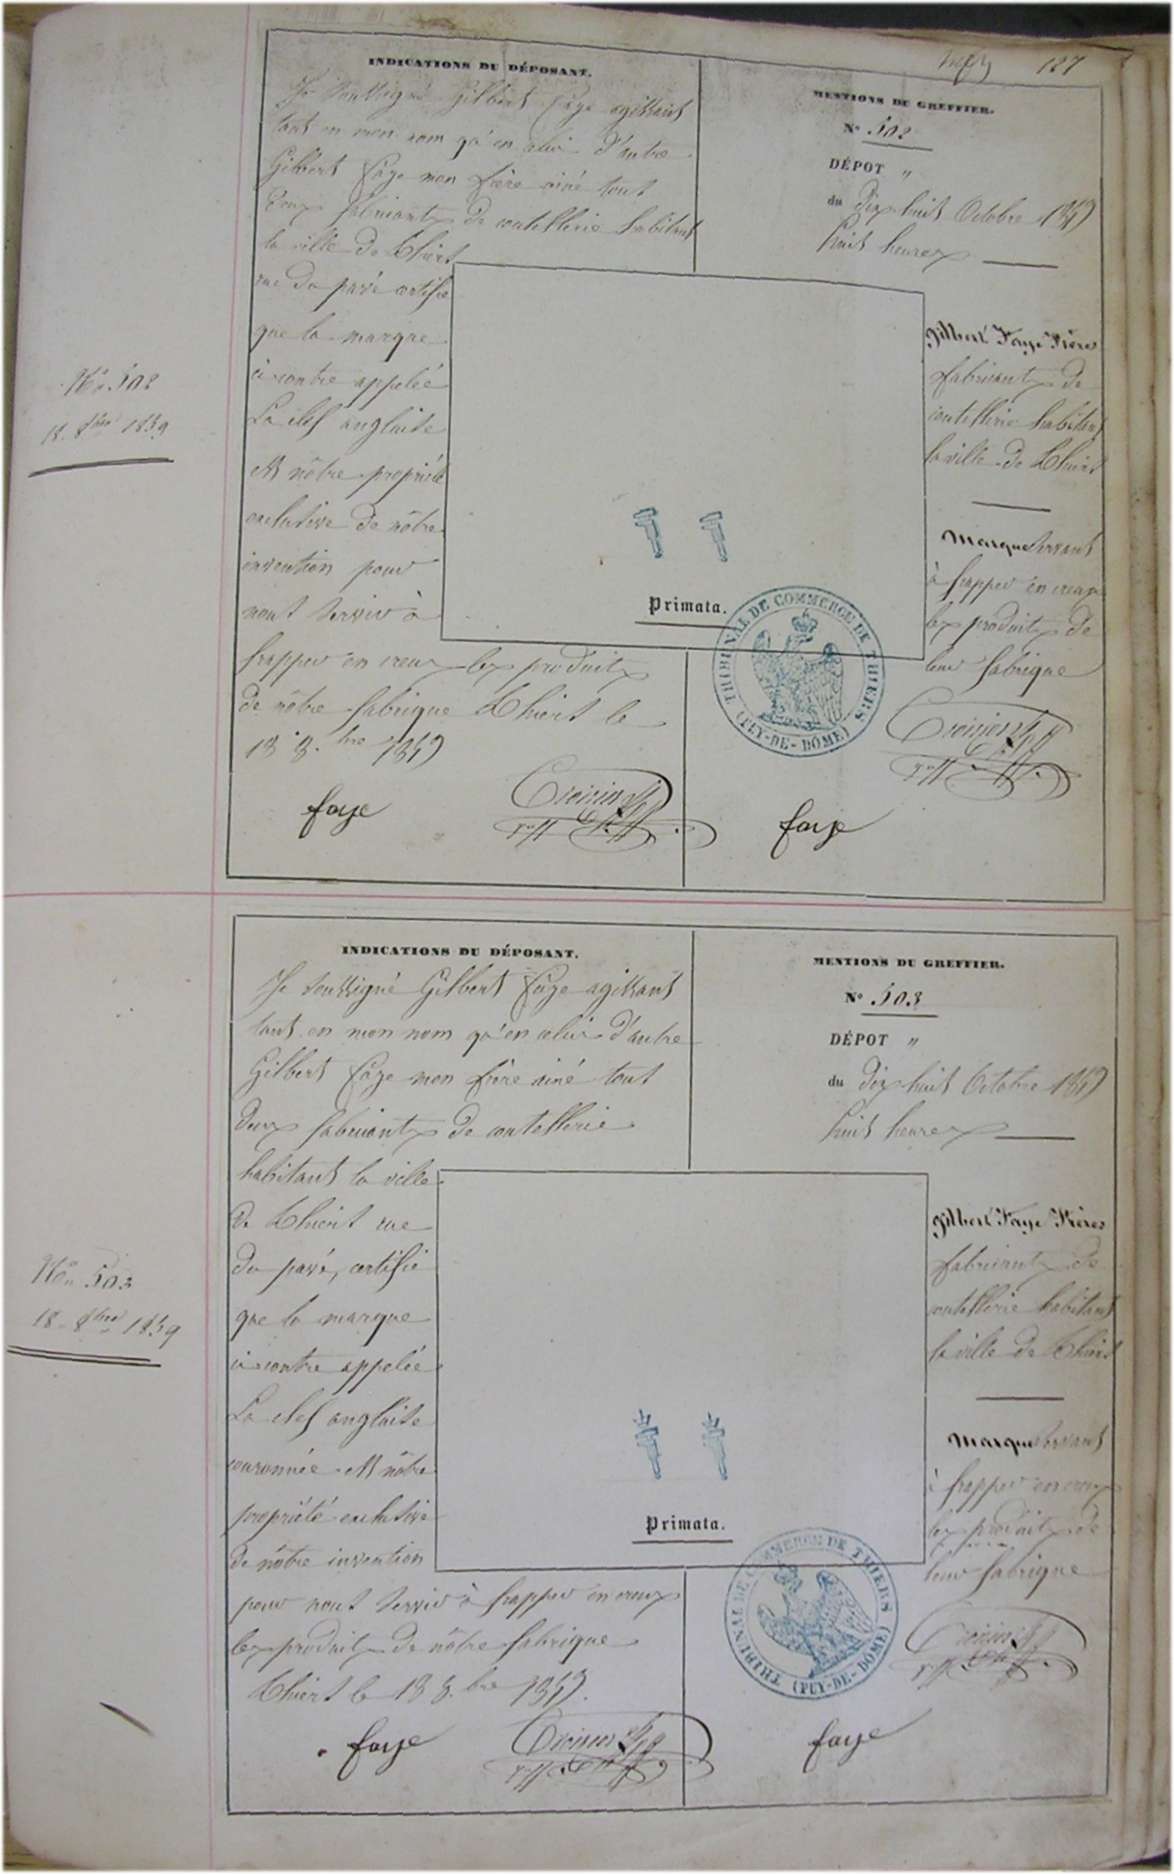 127
INDICATIONS DU DÉPOSANT.
Je soussigné Gilbert Faye agissant
tant en mon nom qu'en celui d'autre
Gilbert Faye mon frère ainé tout
deux fabricants de coutellerie habitant
la ville de Thiers
rue du pavé certifie
que la marque
ci contre appelée
La clef anglaise
est nôtre propriété
exclusive de nôtre
invention pour
nous servir à
frapper en creux les produits
de nôtre fabrique Thiers le
18 8.bre 1859
faye
MENTIONS DU GREFFIER.
N° 502
DÉPOT "
du dix huit Octobre 1859
huit heures
Gilbert Faye Frères
fabricants de
coutellerie habitant
la ville de Thiers
Marque servant
à frapper en creux
les produits de
leur fabrique
faye
Primata.
TRIBUNAL DE COMMERCE DE THIERS
(PUY-DE-DÔME)
No 502
18 8bre 1859
INDICATIONS DU DÉPOSANT.
Je soussigné Gilbert Faye agissant
tant en mon nom qu'en celui d'autre
Gilbert Faye mon frère ainé tout
deux fabricants de coutellerie
habitant la ville
de Thiers rue
du pavé, certifie
que la marque
ci contre appelée
La clef anglaise
couronnée est nôtre
propriété exclusive
de nôtre invention
pour nous servir à frapper en creux
les produits de nôtre fabrique
Thiers le 18 8.bre 1859.
faye
MENTIONS DU GREFFIER.
N° 503
DÉPOT "
du dix huit Octobre 1859
huit heures
Gilbert Faye Frères
fabricants de
coutellerie habitant
la ville de Thiers
Marque servant
à frapper en creux
les produits de
leur fabrique
faye
Primata.
TRIBUNAL DE COMMERCE DE THIERS
(PUY-DE-DÔME)
No 503
18 8bre 1859